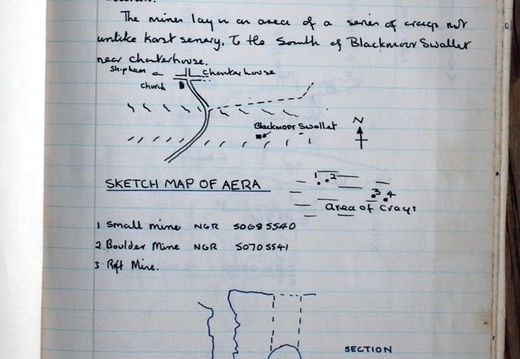 The mines lay in an area of a series of crags not
unlike karst senery. To the South of Blackmoor Swallet
near charterhouse.
Shipham Charterhouse
church
Blackmoor Swallet
N
SKETCH MAP OF AERA
1 2
3 4
area of Crags
1 Small mine NGR 50695540
2 Boulder Mine NGR 50705541
3 Rift Mine.
SECTION